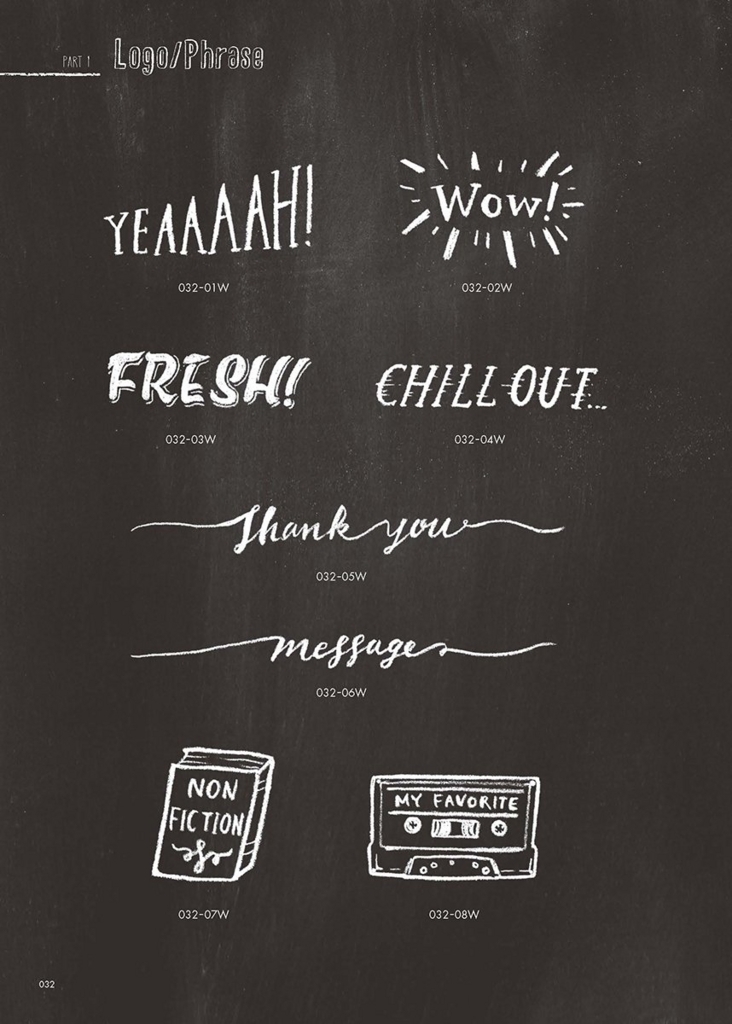 PART 1 Logo/Phrase
YEAAAAH! Wow!
032-01W 032-02W
FRESH! CHILL OUT...
032-03W 032-04W
Thank you
032-05W
message
032-06W
NON
FICTION
MY FAVORITE
032-07W 032-08W
032